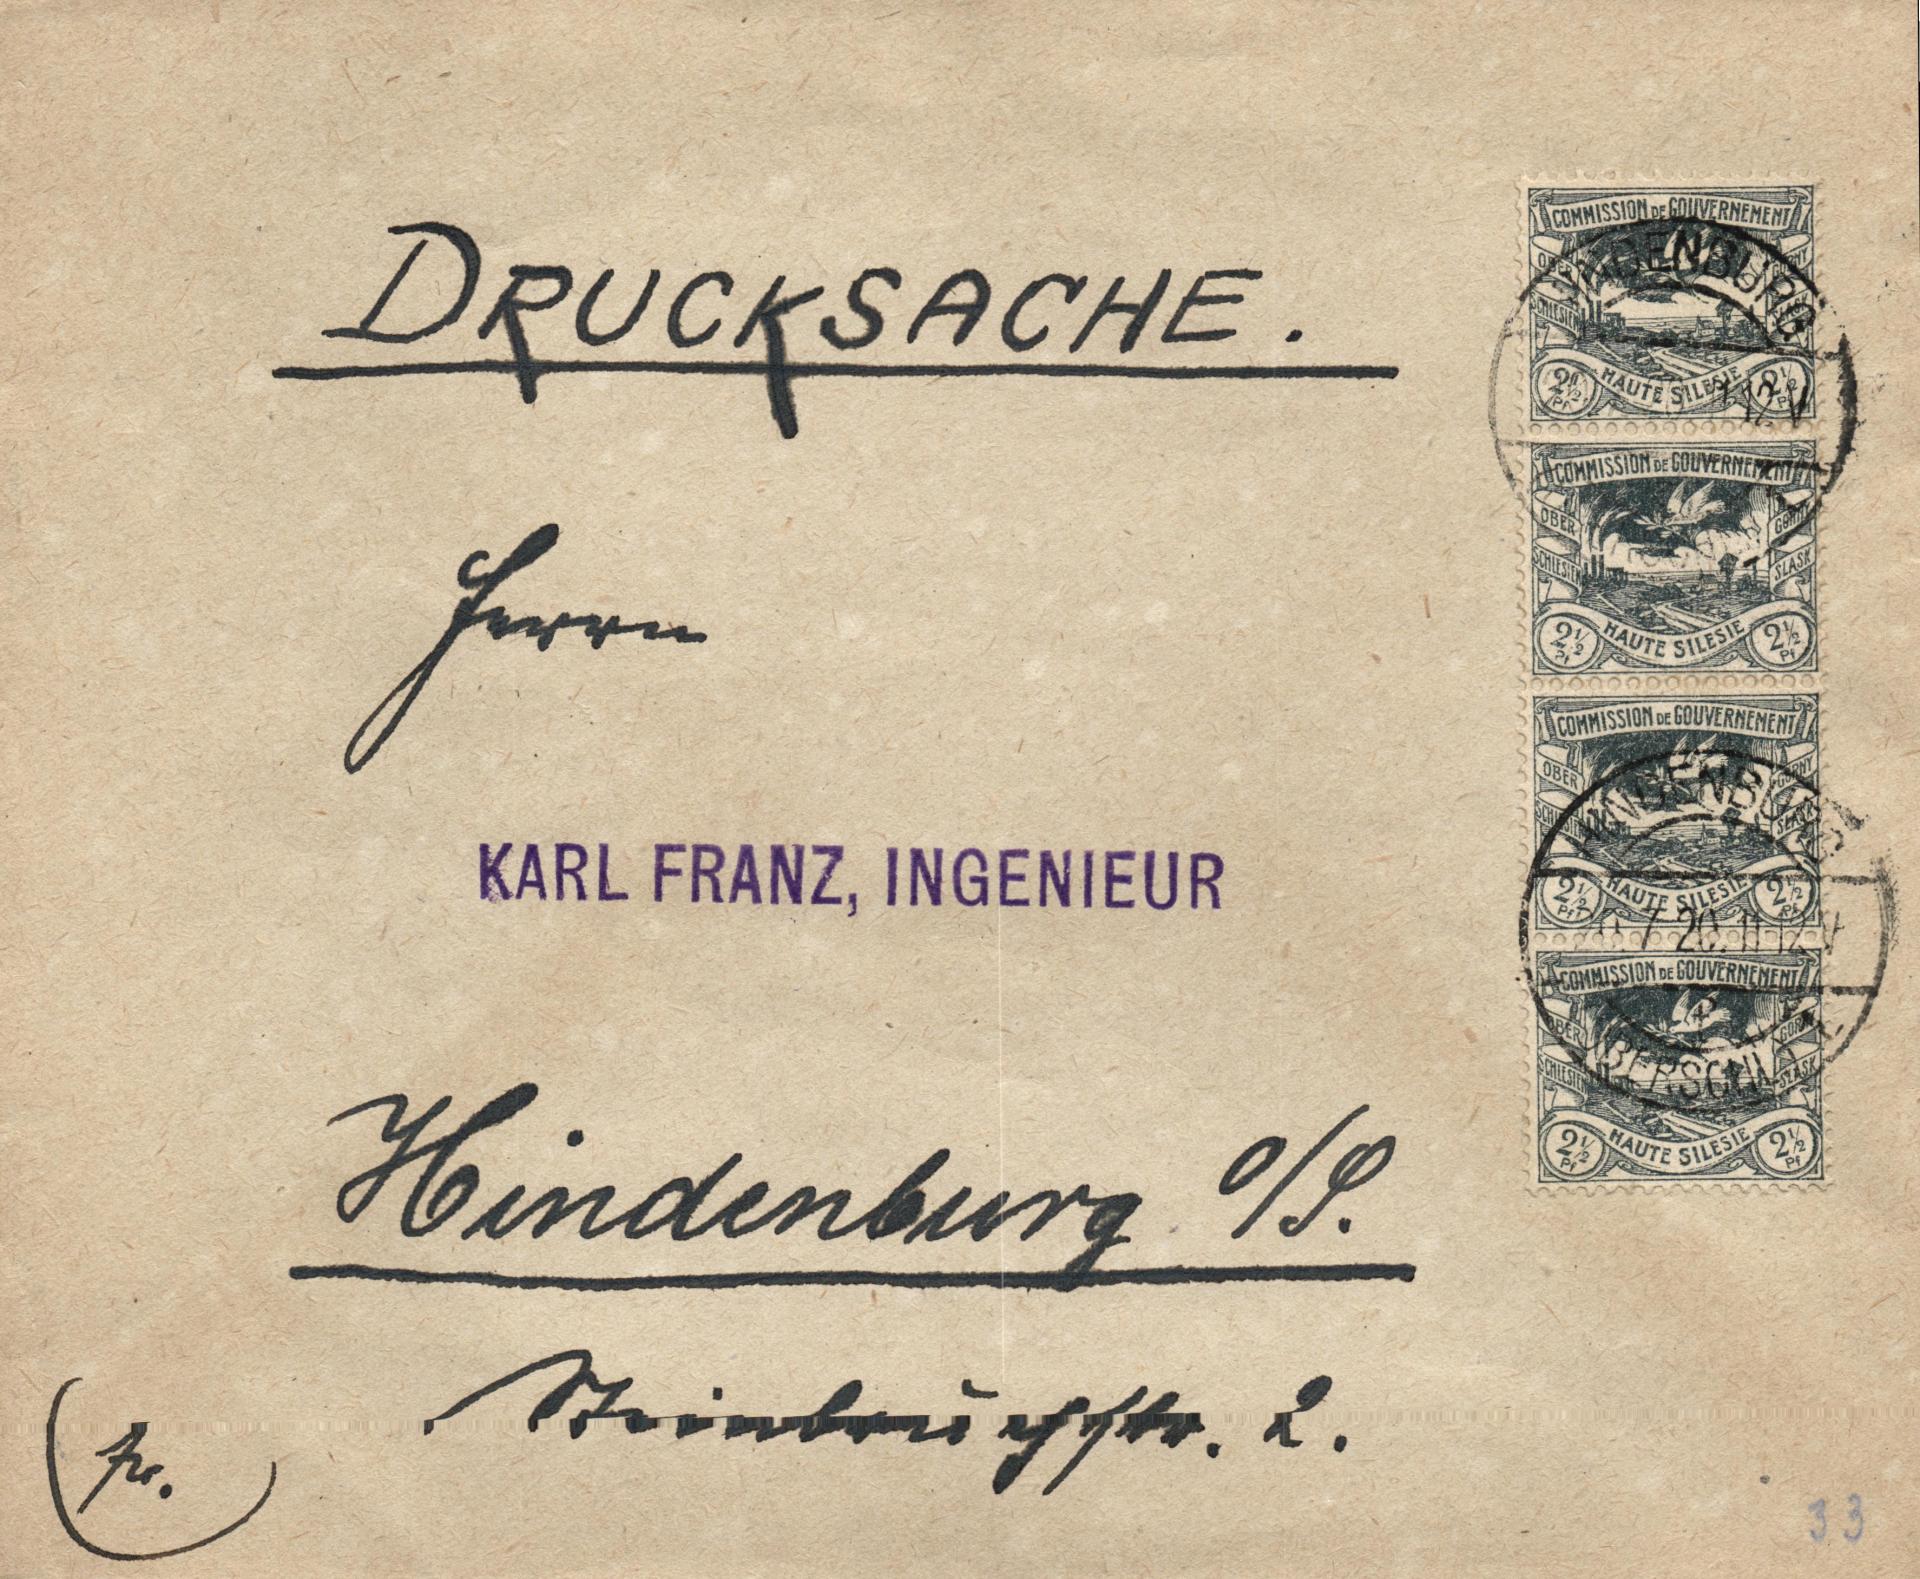 DRUCKSACHE.
Herrn
KARL FRANZ, INGENIEUR
Hindenburg o/S.
Steinbruchstr. 2.
fr.
33
COMMISSION DE GOUVERNEMENT
OBER SCHLESIEN GORNY SLASK
HAUTE SILESIE
2½ Pf 2½ Pf
COMMISSION DE GOUVERNEMENT
OBER SCHLESIEN GORNY SLASK
HAUTE SILESIE
2½ Pf 2½ Pf
COMMISSION DE GOUVERNEMENT
OBER SCHLESIEN GORNY SLASK
HAUTE SILESIE
2½ Pf 2½ Pf
COMMISSION DE GOUVERNEMENT
OBER SCHLESIEN GORNY SLASK
HAUTE SILESIE
2½ Pf 2½ Pf
HINDENBURG
HINDENBURG
7 20. 11-12 V
OBERSCHL.